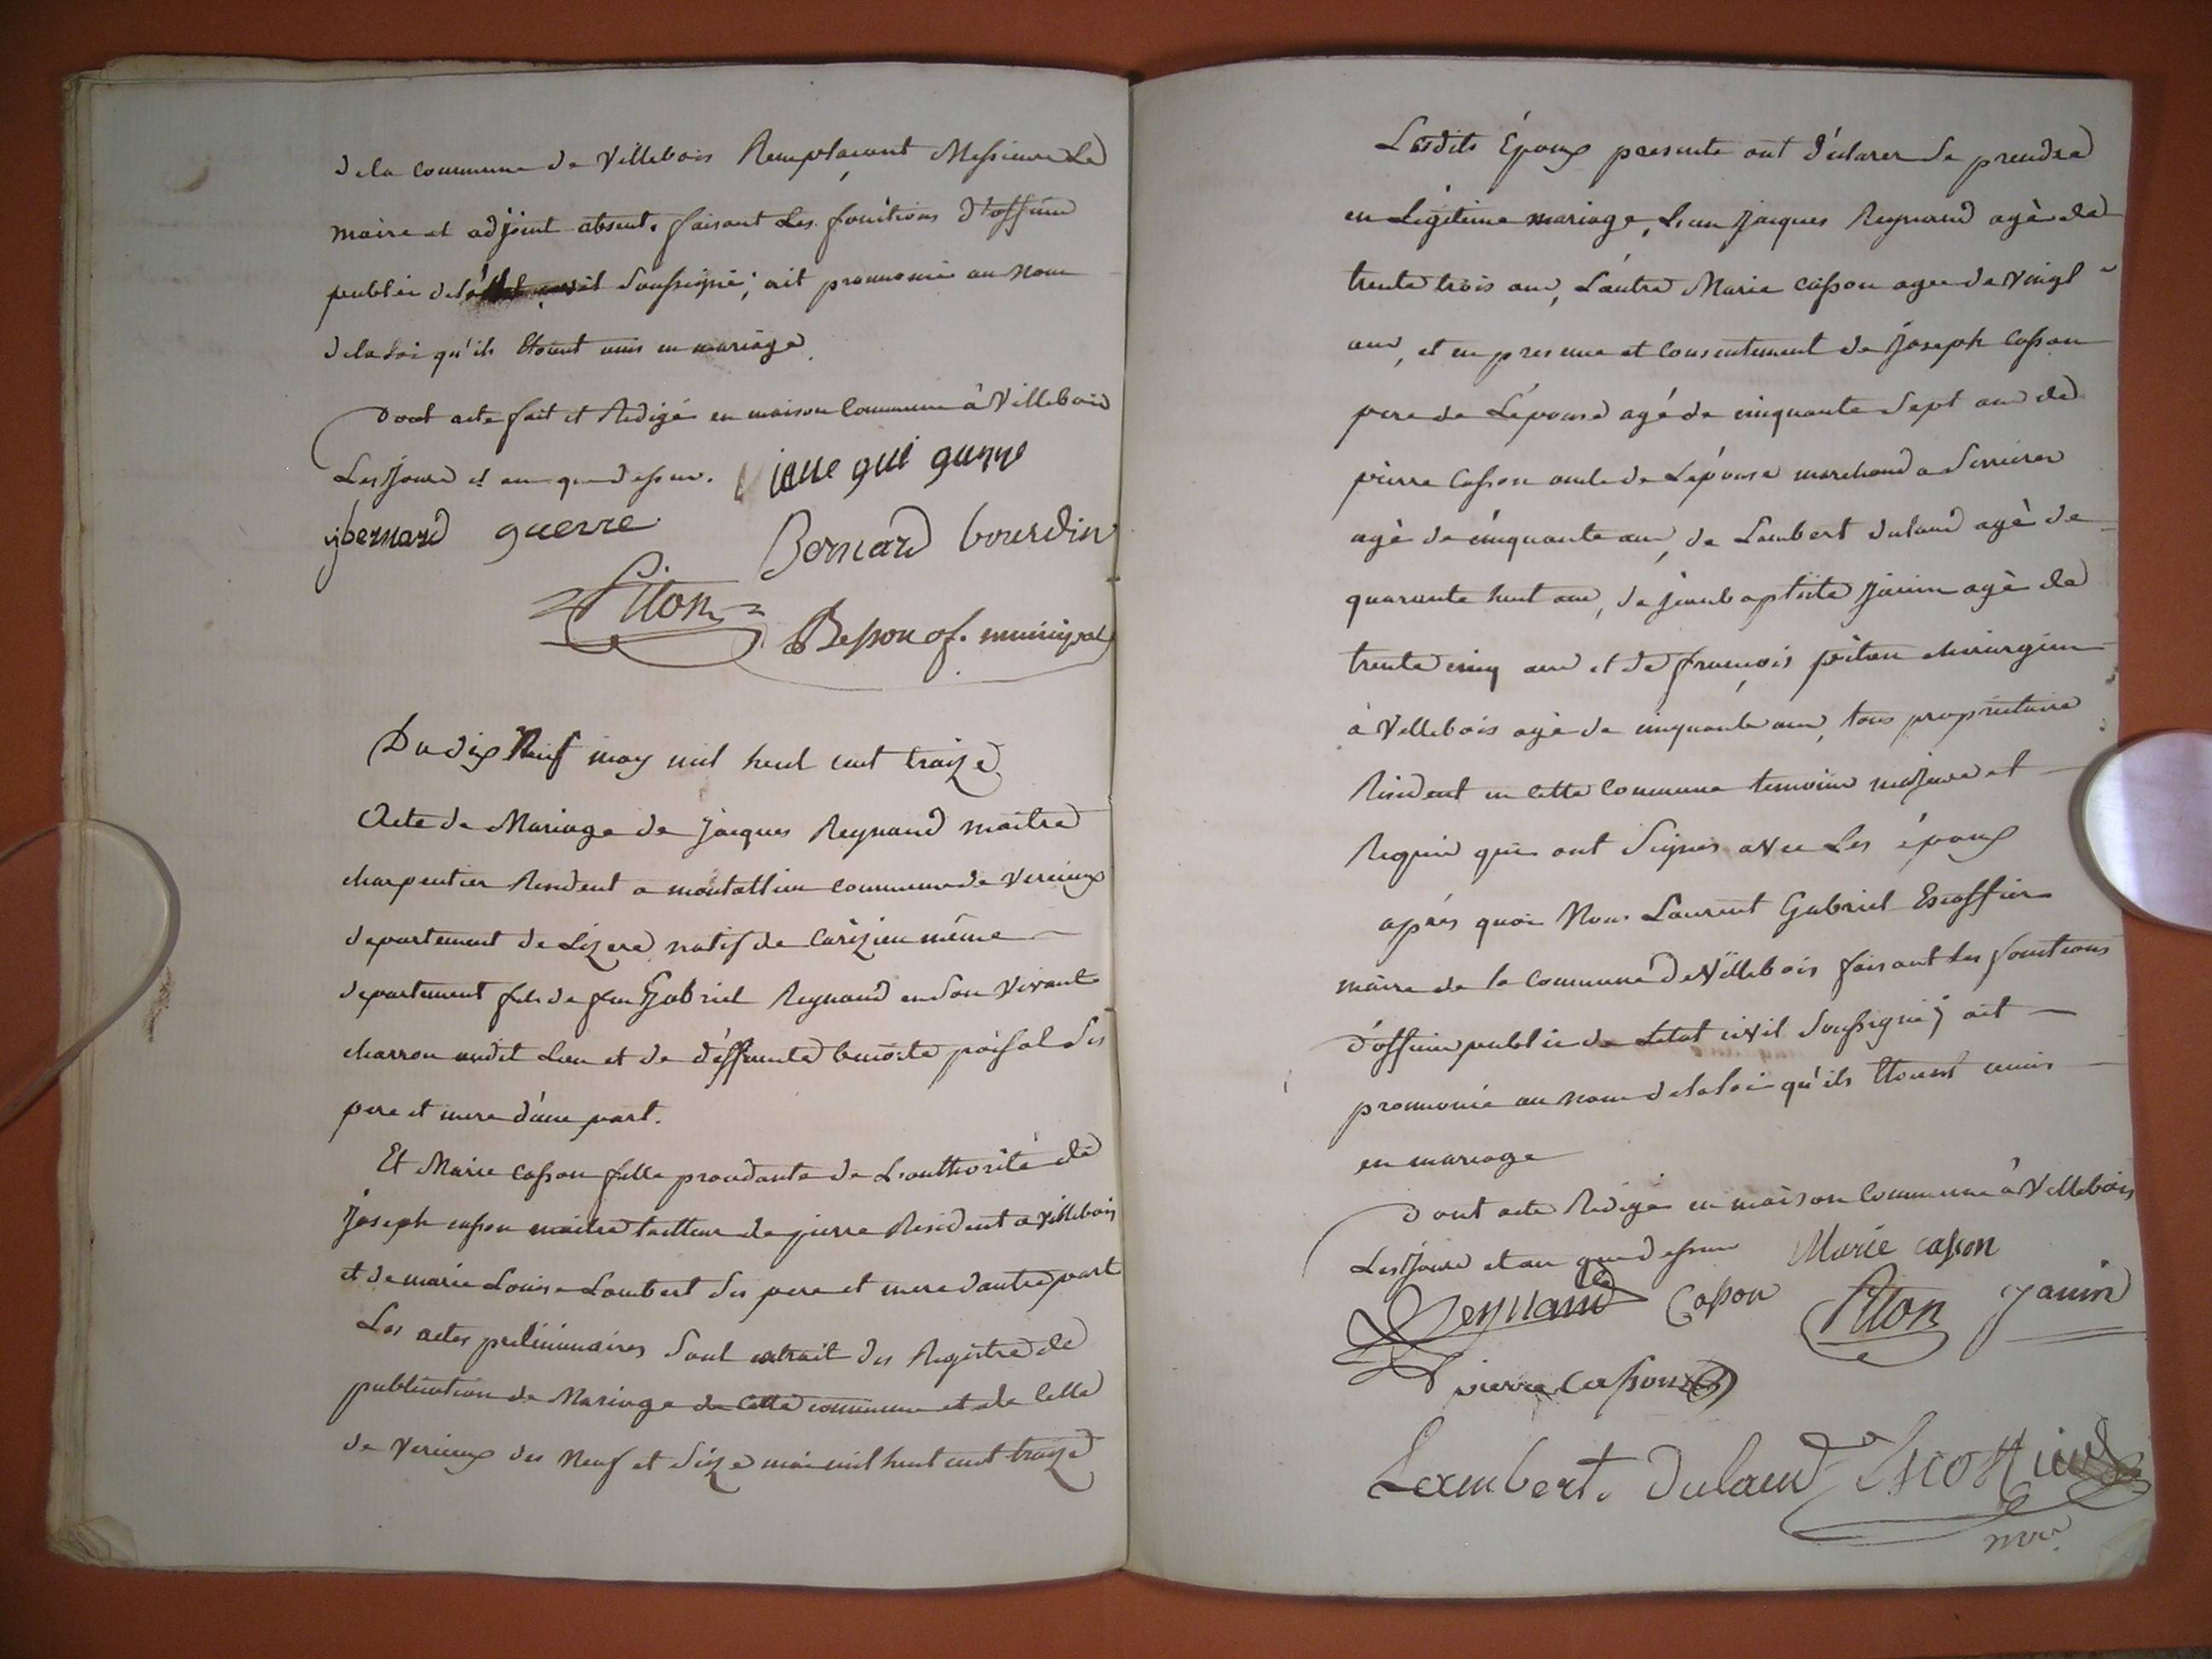 de la commune de Villebois Remplacant Messieurs Le
maire et adjoint absent. faisant Les fonctions d'officier
public de l'état civil Soussigné; ait prononcé au nom
de la Loi qu'ils étoient unis en mariage
Dont acte fait et Redigé en maison Commune à Villebois
Les Jours et an que dessus.
jbernard guerre
Bernard bourdin
Piton
Besson of. municipal
Du dix Neuf may mil huit cent traize
Acte de Mariage de Jacques Reynaud maitre
charpentier Resident a montallieu commune de Vercieux
departement de Lizere natif de Carizieu même
departement fils de feu Gabriel Reynaud en son Vivant
charron audit Lieu et de déffunte benoite paisal Ses
pere et mere d'une part.
Et Marie Casson fille proudante de L'authorité de
Joseph casson maitre tailleur de pierre Resident a Villebois
et de marie Louise Lambert Ses pere et mere d'autre part
Les actes preliminaires Sont extrait des Registre de
publication de Mariage de cette commune et de Celle
de Vercieux des Neuf et Size mai mil huit cent traize
Lesdits Époux presents ont déclarer Se prendre
en Légitime mariage, L'un Jacques Reynaud agé de
trente trois ans, L'autre Marie Casson agee de Vingt
ans, et en presence et Consentement de Joseph Casson
pere de L'épouse agé de cinquante Sept ans de
pierre Casson oncle de L'épouse marchand a Serrieres
agé de cinquante ans, de Lambert dulaud agé de
quarante huit ans, de jean baptiste Janin agé de
trente cinq ans et de françois piton chirurgien
à Villebois agé de cinquante ans, tous propriétaire
Resident en Cette Commune temoins majeurs et
Requis qui ont Signés avec Les époux
aprés quoi Nous Laurent Gabriel Escoffier
maire de la Commune de Villebois faisant les fonctions
d'officier public de Létat civil Soussigné; ait
prononcé au nom de la Loi qu'ils étoient unis
en mariage
Dont acte Redigé en maison Commune à Villebois
Les Jours et an que dessus Marie casson
Reynaud Casson Piton Janin
pierre Casson
Lambert. dulaud Escoffier
mre